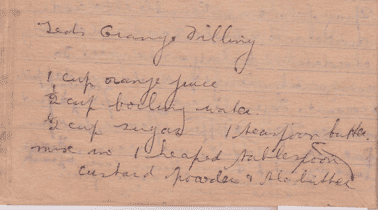 Ted's Orange Filling
1 cup orange juice
½ cup boiling water.
½ cup sugar 1 teaspoon butter
mix in 1 heaped tablespoon
custard powder & the butter